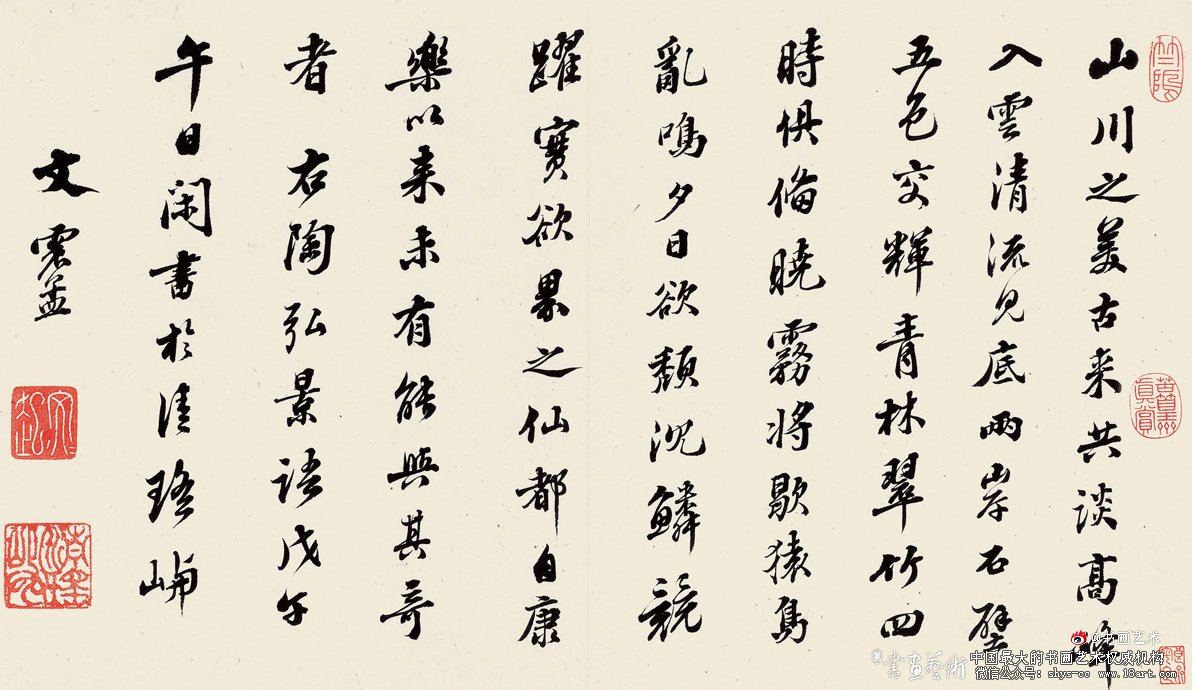 山川之美古来共談高峰
入雲清流見底兩岸石壁
五色交輝青林翠竹四
時俱備曉霧將歇猿鳥
亂鳴夕日欲頹沉鱗競
躍實欲界之仙都自康
樂以来未有能與其奇
者 右陶弘景語戊午
午日閑書於清瑤嶼
文震孟
文起
竹隖
@书画艺术
書畫藝術
中国最大的书画艺术权威机构
微信公众号：shys-cc www.18art.com